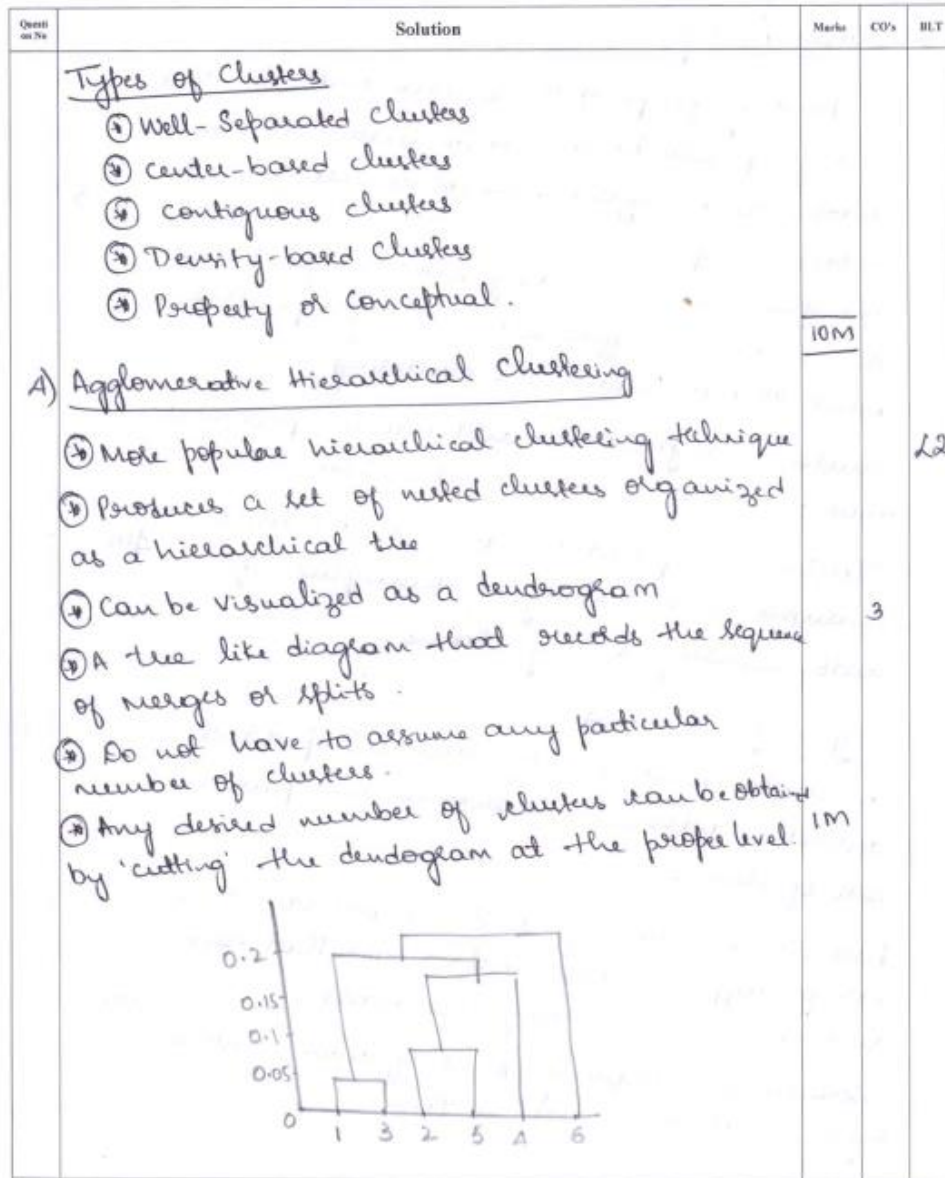 Questi on No Solution Marks CO's BLT
Types of Clusters
Well-Separated clusters
center-based clusters
contiguous clusters
Density-based clusters
Property or Conceptual.
10M
4) Agglomerative Hierarchical Clustering
More popular hierarchical clustering technique
L2
Produces a set of nested clusters organized
as a hierarchical tree
Can be visualized as a dendrogram
3
A tree like diagram that records the sequence
of merges or splits.
Do not have to assume any particular
number of clusters.
Any desired number of clusters can be obtained
1M
by 'cutting' the dendogram at the proper level.
0.2
0.15
0.1
0.05
0
1 3 2 5 4 6